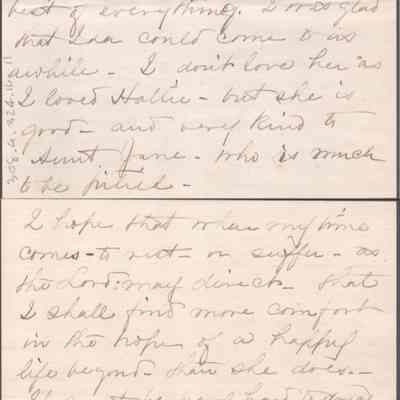 best of everything. I was glad
that Ida could come to us
awhile - I don't love her as
I loved Hallie - but she is
good - and very kind to
Aunt Jane - who is much
to be pitied -
I hope that when my time
comes - to rest - or suffer - as
the Lord may direct - that
I shall find more comfort
in the hope of a happy
life beyond - than she does. -